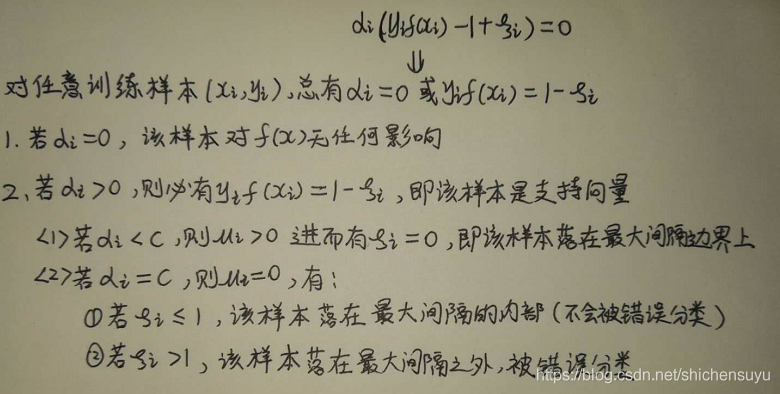 αi(yif(xi)-1+ξi)=0
⇓
对任意训练样本(xi,yi),总有αi=0 或yif(xi)=1-ξi
1. 若αi=0, 该样本对f(x)无任何影响
2、若αi>0,则必有yif(xi)=1-ξi,即该样本是支持向量
<1>若αi<C,则μi>0 进而有ξi=0,即该样本落在最大间隔边界上
<2>若αi=C,则μi=0,有:
①若ξi≤1,该样本落在最大间隔的内部(不会被错误分类)
②若ξi>1,该样本落在最大间隔之外,被错误分类
https://blog.csdn.net/shichensuyu